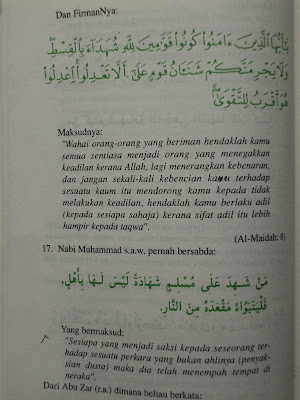 Dan FirmanNya:
يَـٰٓأَيُّهَا ٱلَّذِينَ ءَامَنُوا۟ كُونُوا۟ قَوَّٰمِينَ لِلَّهِ شُهَدَآءَ بِٱلْقِسْطِ
وَلَا يَجْرِمَنَّكُمْ شَنَـَٔانُ قَوْمٍ عَلَىٰٓ أَلَّا تَعْدِلُوا۟ ٱعْدِلُوا۟
هُوَ أَقْرَبُ لِلتَّقْوَىٰ
Maksudnya:
"Wahai orang-orang yang beriman hendaklah kamu
semua sentiasa menjadi orang yang menegakkan
keadilan kerana Allah, lagi menerangkan kebenaran,
dan jangan sekali-kali kebencian kamu terhadap
sesuatu kaum itu mendorong kamu kepada tidak
melakukan keadilan, hendaklah kamu berlaku adil
(kepada sesiapa sahaja) kerana sifat adil itu lebih
hampir kepada taqwa".
(Al-Maidah: 8)
17. Nabi Muhammad s.a.w. pernah bersabda:
مَنْ شَهِدَ عَلَى مُسْلِمٍ شَهَادَةً لَيْسَ لَهَا بِأَهْلٍ،
فَلْيَتَبَوَّأْ مَقْعَدَهُ مِنَ النَّارِ.
Yang bermaksud:
"Sesiapa yang menjadi saksi kepada seseorang ter-
hadap sesuatu perkara yang bukan ahlinya (penyak-
sian dusta) maka dia telah menempah tempat di
neraka".
Dari Abu Zar (r.a.) dimana beliau berkata: